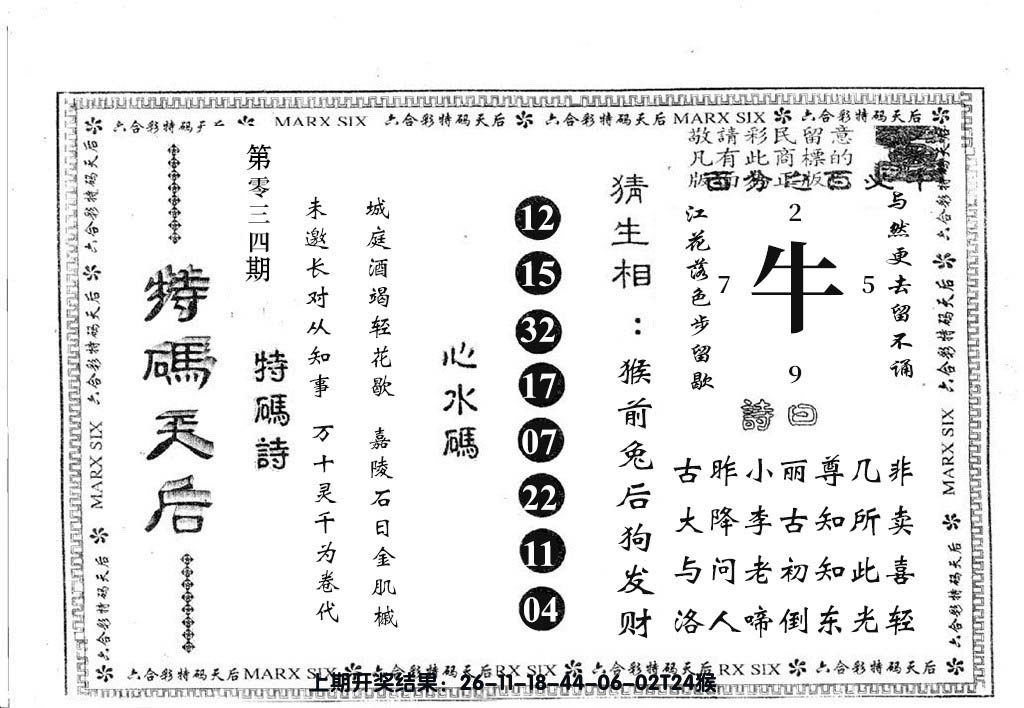 六合彩特码天后 MARX SIX 六合彩特码天后 六合彩特码天后 MARX SIX 六合彩特码天后
敬請彩民留意
凡有此商標的
版面为正版
与然更去留不诵
2
7 牛 5
9
江花落色步留歇
詩曰
古昨小丽尊几非
大降李古知所卖
与问老初知此喜
洛人啼倒东光轻
猜生相：猴前兔后狗发财
12
15
32
17
07
22
11
04
心水碼
城庭酒竭轻花歇 嘉陵石日金肌槭
未邀长对从知事 万十灵千为卷代
第零三四期
特碼詩
特碼天后
六合彩特码天后 MARX SIX 六合彩特码天后
六合彩特码天后 MARX SIX 六合彩特码天后
六合彩特码天后 MARX SIX 六合彩特码天后 RX SIX 六合彩特码天后 RX SIX 六合彩特码天后
上期开奖结果：26-11-18-44-06-02T24猴